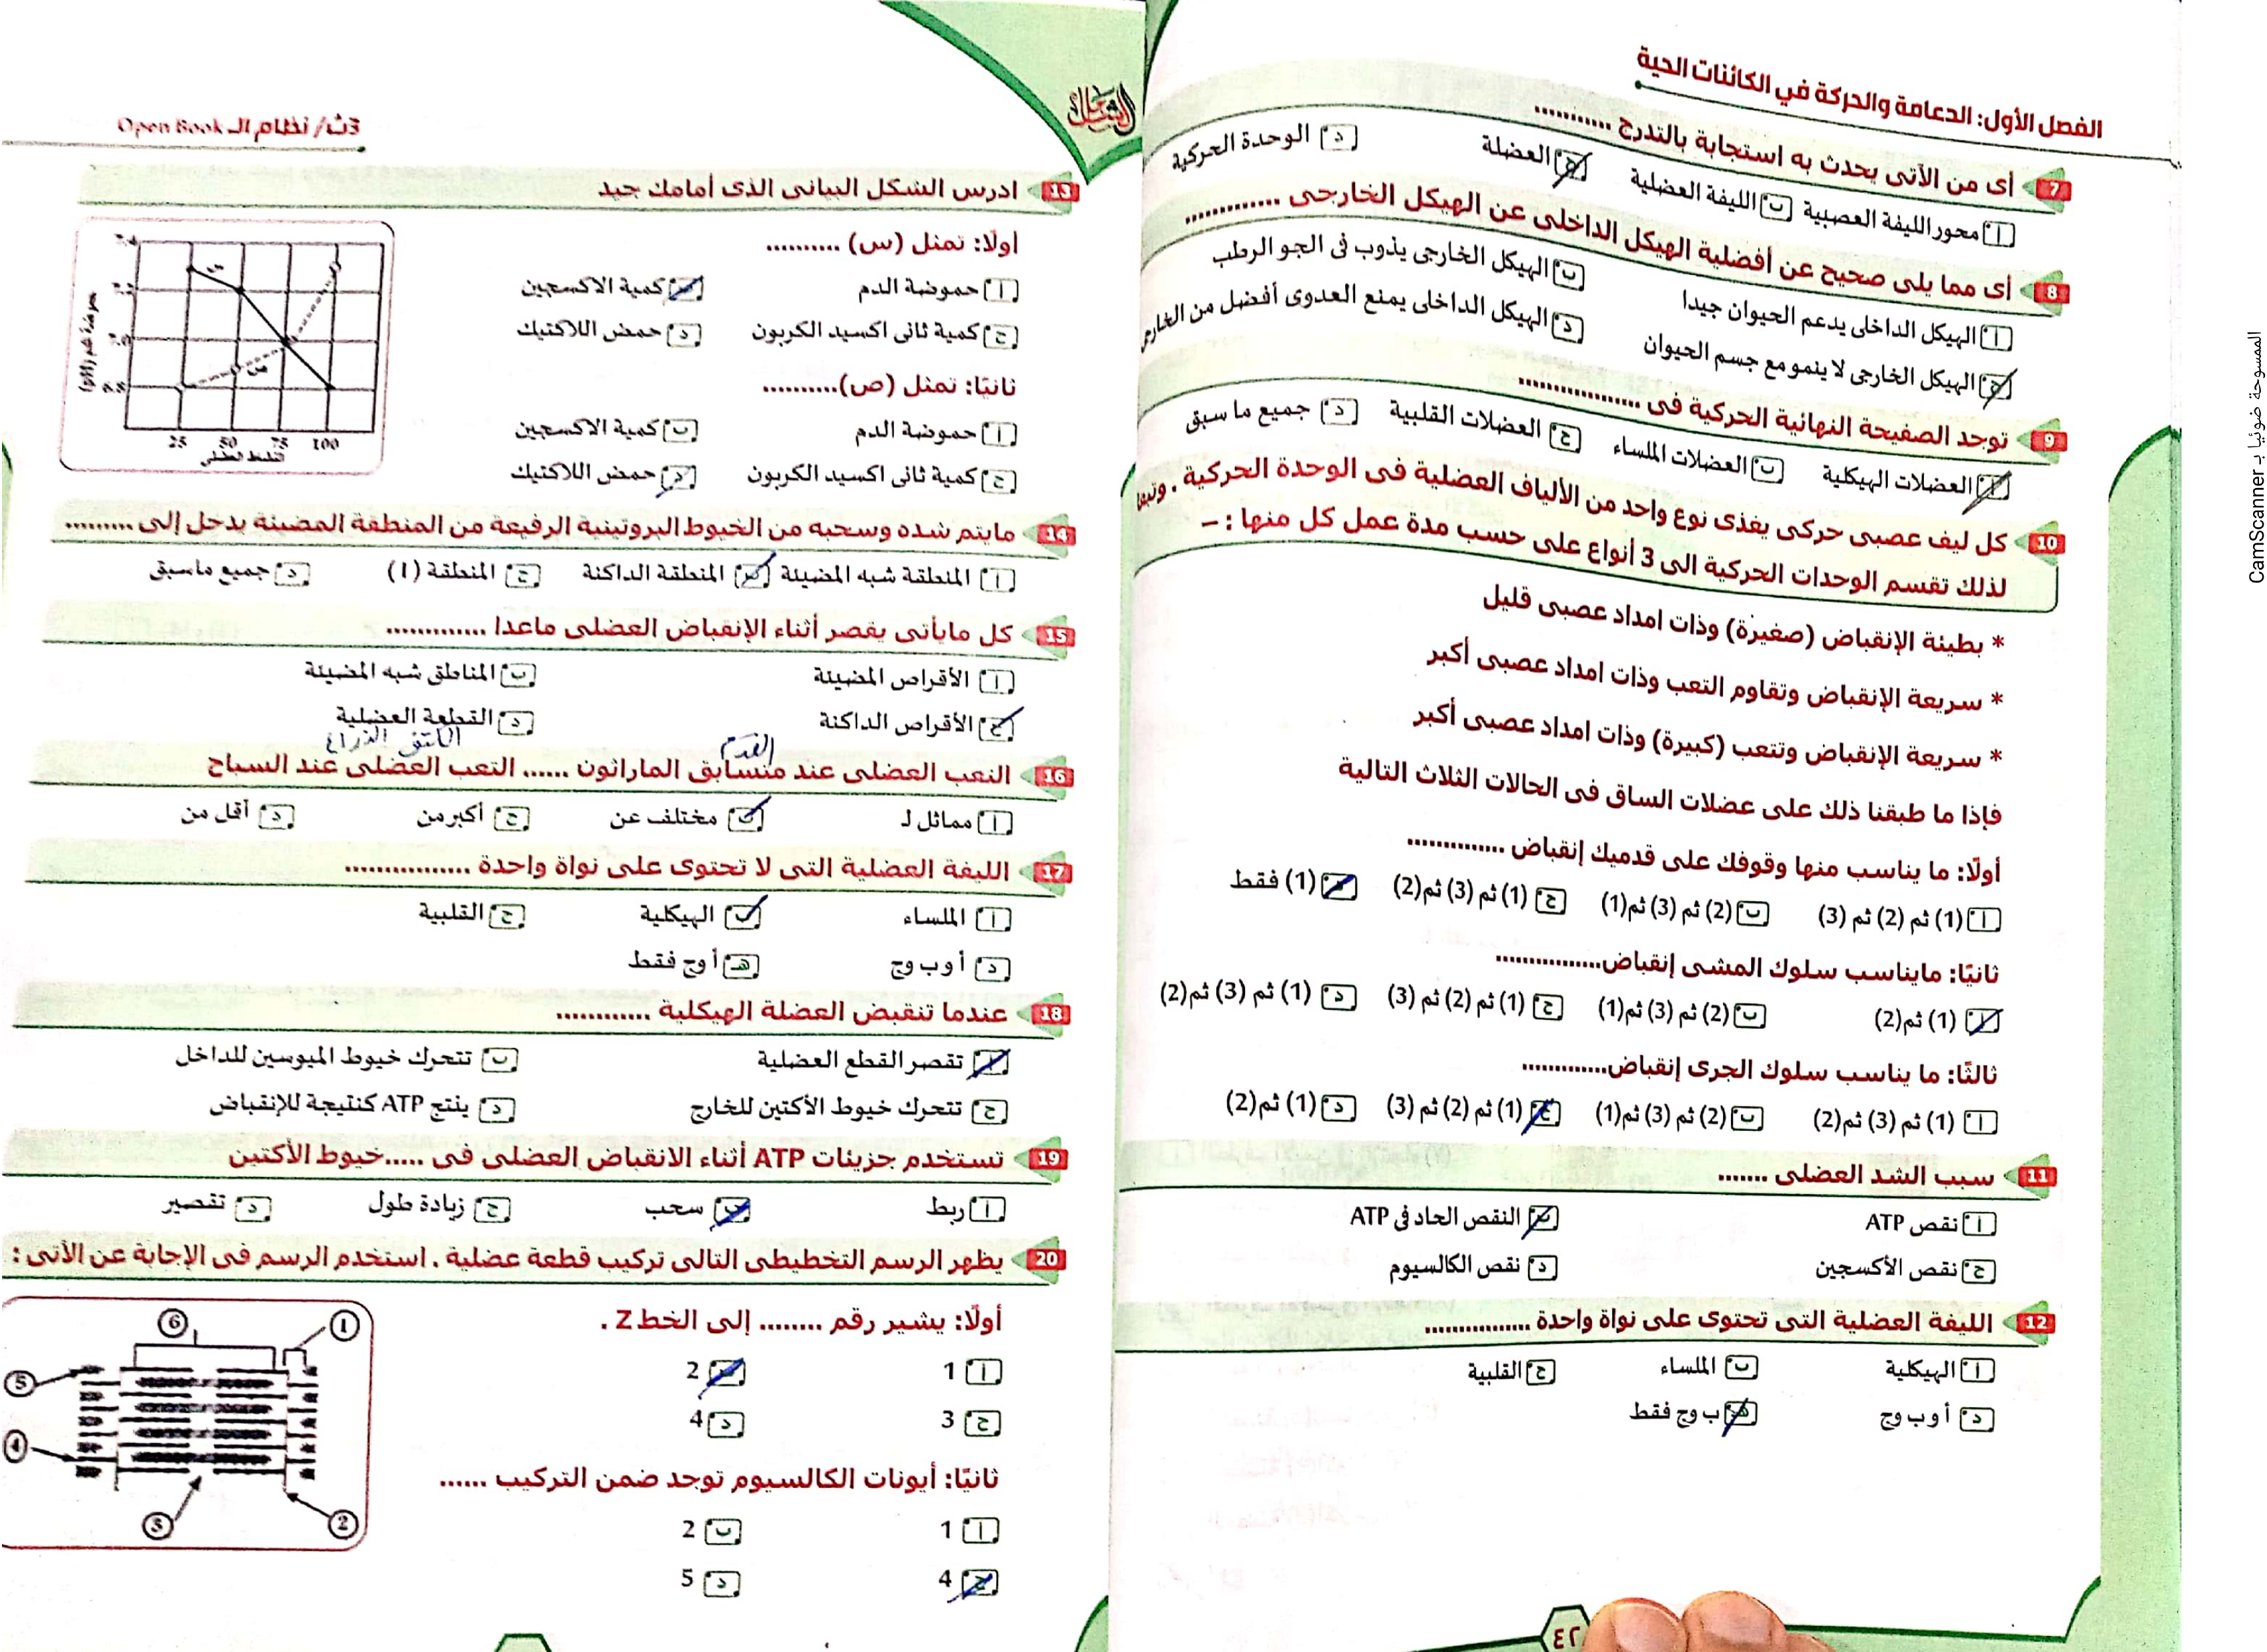 الفصل الأول: الدعامة والحركة في الكائنات الحية
7 أى من الأتى يحدث به استجابة بالتدرج ...........
أ محور الليفة العصبية ب الليفة العضلية ج العضلة د الوحدة الحركية
8 أى مما يلى صحيح عن أفضلية الهيكل الداخلى عن الهيكل الخارجى .............
أ الهيكل الداخلى يدعم الحيوان جيدا ب الهيكل الخارجى يذوب فى الجو الرطب
ج الهيكل الخارجى لا ينمو مع جسم الحيوان د الهيكل الداخلى يمنع العدوى أفضل من الخارجى
9 توجد الصفيحة النهائية الحركية فى ................
أ العضلات الهيكلية ب العضلات الملساء ج العضلات القلبية د جميع ما سبق
10 كل ليف عصبى حركى يغذى نوع واحد من الألياف العضلية فى الوحدة الحركية . وتبعا
لذلك تقسم الوحدات الحركية الى 3 أنواع على حسب مدة عمل كل منها : –
* بطيئة الإنقباض (صغيرة) وذات امداد عصبى قليل
* سريعة الإنقباض وتقاوم التعب وذات امداد عصبى أكبر
* سريعة الإنقباض وتتعب (كبيرة) وذات امداد عصبى أكبر
فإذا ما طبقنا ذلك على عضلات الساق فى الحالات الثلاث التالية
أولًا: ما يناسب منها وقوفك على قدميك إنقباض .............
أ (1) ثم (2) ثم (3) ب (2) ثم (3) ثم(1) ج (1) ثم (3) ثم(2) د (1) فقط
ثانيًا: مايناسب سلوك المشى إنقباض...............
أ (1) ثم(2) ب (2) ثم (3) ثم(1) ج (1) ثم (2) ثم (3) د (1) ثم (3) ثم(2)
ثالثًا: ما يناسب سلوك الجرى إنقباض.............
أ (1) ثم (3) ثم(2) ب (2) ثم (3) ثم(1) ج (1) ثم (2) ثم (3) د (1) ثم(2)
11 سبب الشد العضلى .......
أ نقص ATP ب النقص الحاد فى ATP
ج نقص الأكسجين د نقص الكالسيوم
12 الليفة العضلية التى تحتوى على نواة واحدة ................
أ الهيكلية ب الملساء ج القلبية
د أ و ب و ج هـ ب و ج فقط
٤٢
الشامل
3ث/ نظام الـ Open Book
13 ادرس الشكل البيانى الذى أمامك جيد
أولًا: تمثل (س) ..........
أ حموضة الدم ب كمية الاكسجين
ج كمية ثانى اكسيد الكربون د حمض اللاكتيك
ثانيًا: تمثل (ص)..........
أ حموضة الدم ب كمية الاكسجين
ج كمية ثانى اكسيد الكربون د حمض اللاكتيك
7.4
7.2
7.0
6.8
س
ص
25 50 75 100
14 مايتم شده وسحبه من الخيوط البروتينية الرفيعة من المنطقة المضيئة يدخل إلى .........
أ المنطقة شبه المضيئة ب المنطقة الداكنة ج المنطقة (I) د جميع ماسبق
15 كل مايأتى يقصر أثناء الإنقباض العضلى ماعدا .............
أ الأقراص المضيئة ب المناطق شبه المضيئة
ج الأقراص الداكنة د القطعة العضلية
القدم
الكتف الذراع
16 التعب العضلى عند متسابق الماراثون ...... التعب العضلى عند السباح
أ مماثل لـ ب مختلف عن ج أكبر من د أقل من
17 الليفة العضلية التى لا تحتوى على نواة واحدة ................
أ الملساء ب الهيكلية ج القلبية
د أ و ب و ج هـ أ و ج فقط
18 عندما تنقبض العضلة الهيكلية ............
أ تقصر القطع العضلية ب تتحرك خيوط الميوسين للداخل
ج تتحرك خيوط الأكتين للخارج د ينتج ATP كنتيجة للإنقباض
19 تستخدم جزيئات ATP أثناء الانقباض العضلى فى .....خيوط الأكتين
أ ربط ب سحب ج زيادة طول د تقصير
20 يظهر الرسم التخطيطى التالى تركيب قطعة عضلية . استخدم الرسم فى الإجابة عن الأتى :
أولًا: يشير رقم ........ إلى الخط Z .
أ 1 ب 2
ج 3 د 4
ثانيًا: أيونات الكالسيوم توجد ضمن التركيب ......
أ 1 ب 2
ج 4 د 5
6 1
5
4
3 2
الممسوحة ضوئيا بـ CamScanner